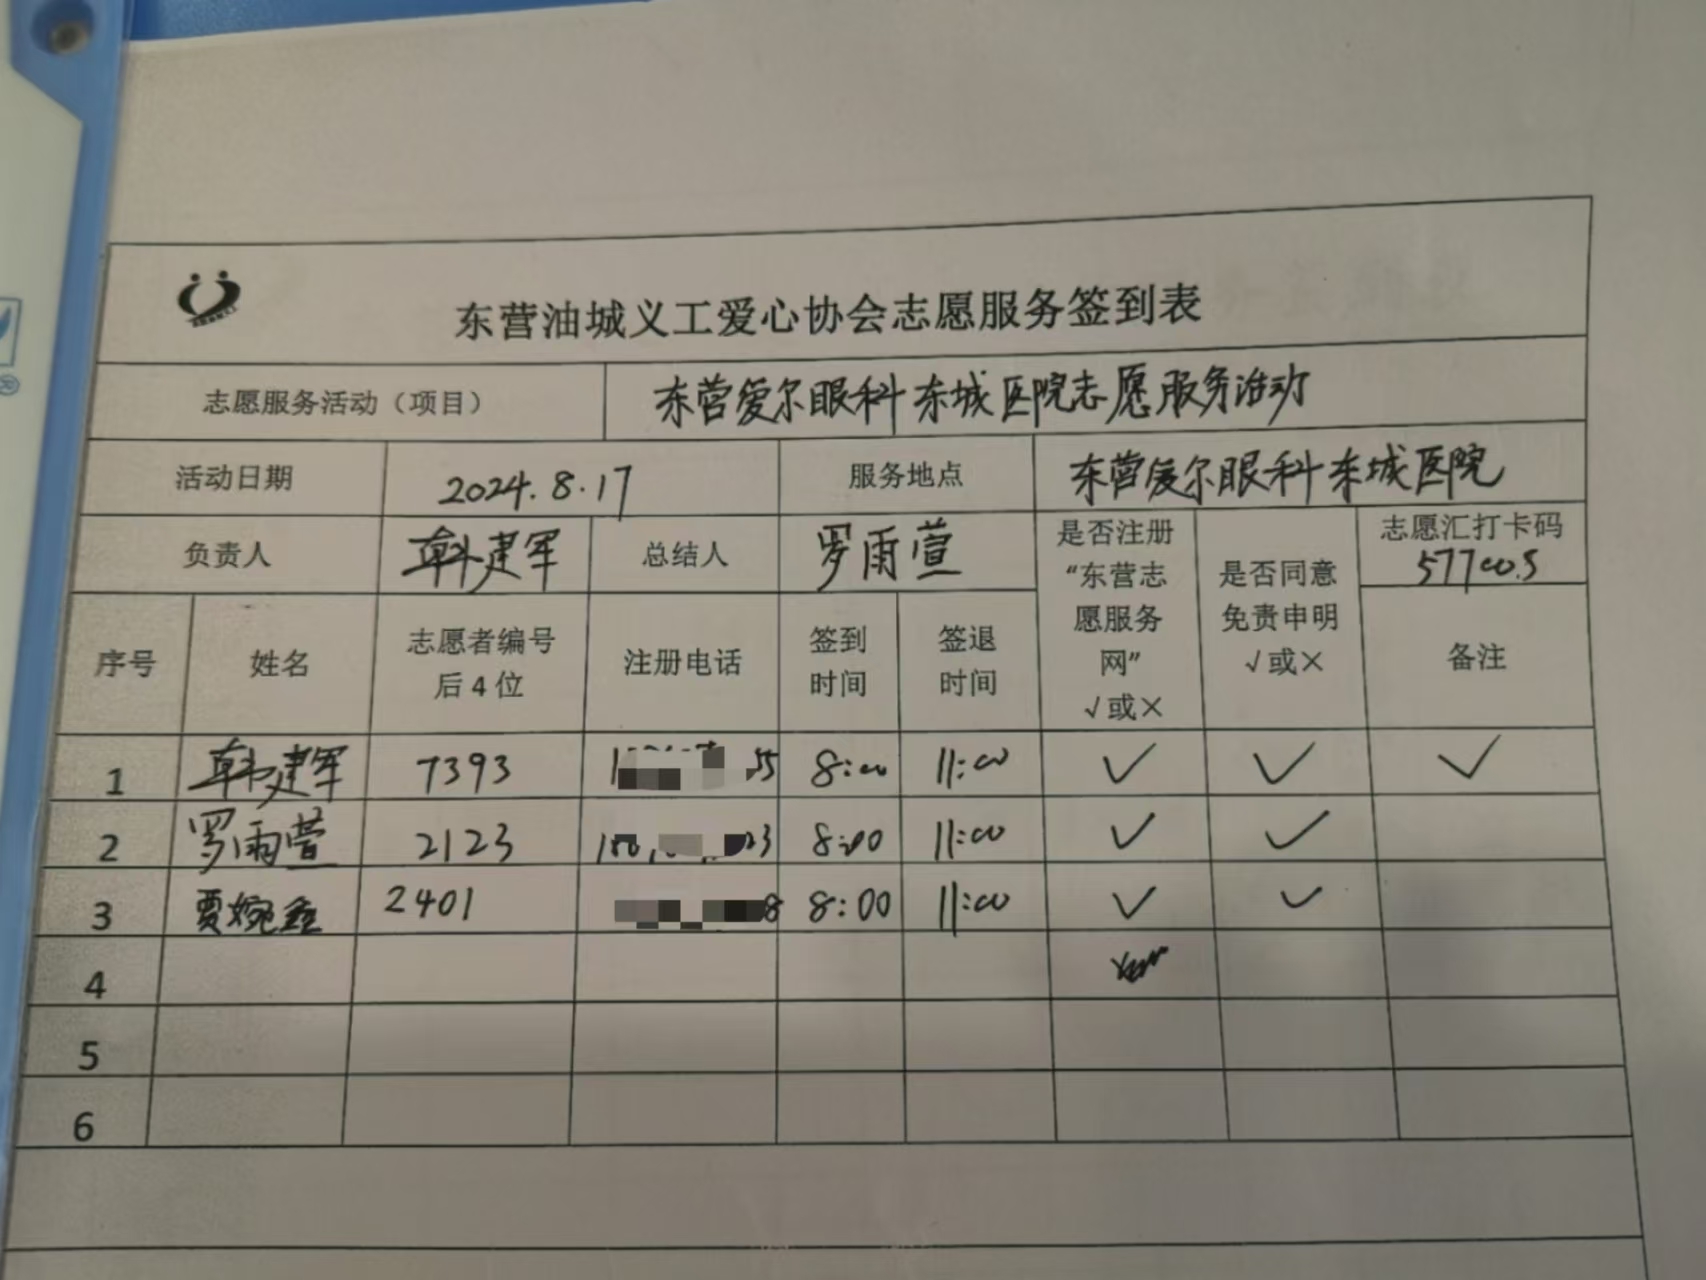 东营油城义工爱心协会志愿服务签到表
志愿服务活动（项目） 东营爱尔眼科东城医院志愿服务活动
活动日期 2024.8.17 服务地点 东营爱尔眼科东城医院
负责人 韩建军 总结人 罗雨萱 是否注册“东营志愿服务网”√或× 是否同意免责申明√或× 志愿汇打卡码 577005
序号 姓名 志愿者编号后4位 注册电话 签到时间 签退时间 备注
1 韩建军 7393 55 8:00 11:00 ✓ ✓ ✓
2 罗雨萱 2123 23 8:00 11:00 ✓ ✓
3 贾婉 2401 8 8:00 11:00 ✓ ✓
4
5
6